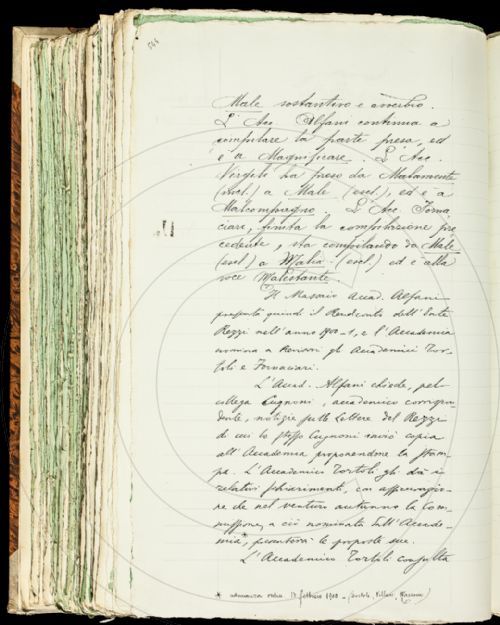 544
Male sostantivo e avverbio.
L'Acc. Alfani continua a
compilare la parte presa, ed
è a Magnificare. L'Acc.
Vergili ha preso da Malamente
(incl.) a Male (escl.), ed è a
Malcompagno. L'Acc. Forna
ciari, finita la compilazione pre
cedente, sta compilando da Male
(escl.) a Malia (escl.) ed è alla
voce Malestante.
Il Massaio Accad. Alfani
presenta quindi il Rendiconto dell'Ente
Rezzi nell'anno 1900-1, e l'Accademia
nomina a Revisori gli Accademici Tor-
toli e Fornaciari.
L'Accad. Alfani chiede, pel
collega Cugnoni, accademico corrispon-
dente, notizie sulle Lettere del Rezzi
di cui lo stesso Cugnoni inviò copia
all'Accademia proponendone la stam-
pa. L'Accademico Tortoli gli dà i
relativi schiarimenti, con assicurazio-
ne che nel venturo autunno la Com-
missione, a ciò nominata dall'Accade-
mia*, presenterà le proposte sue.
L'Accademico Tortoli consulta
* adunanza 13 febbraio 1900 - (Tortoli, Villari,